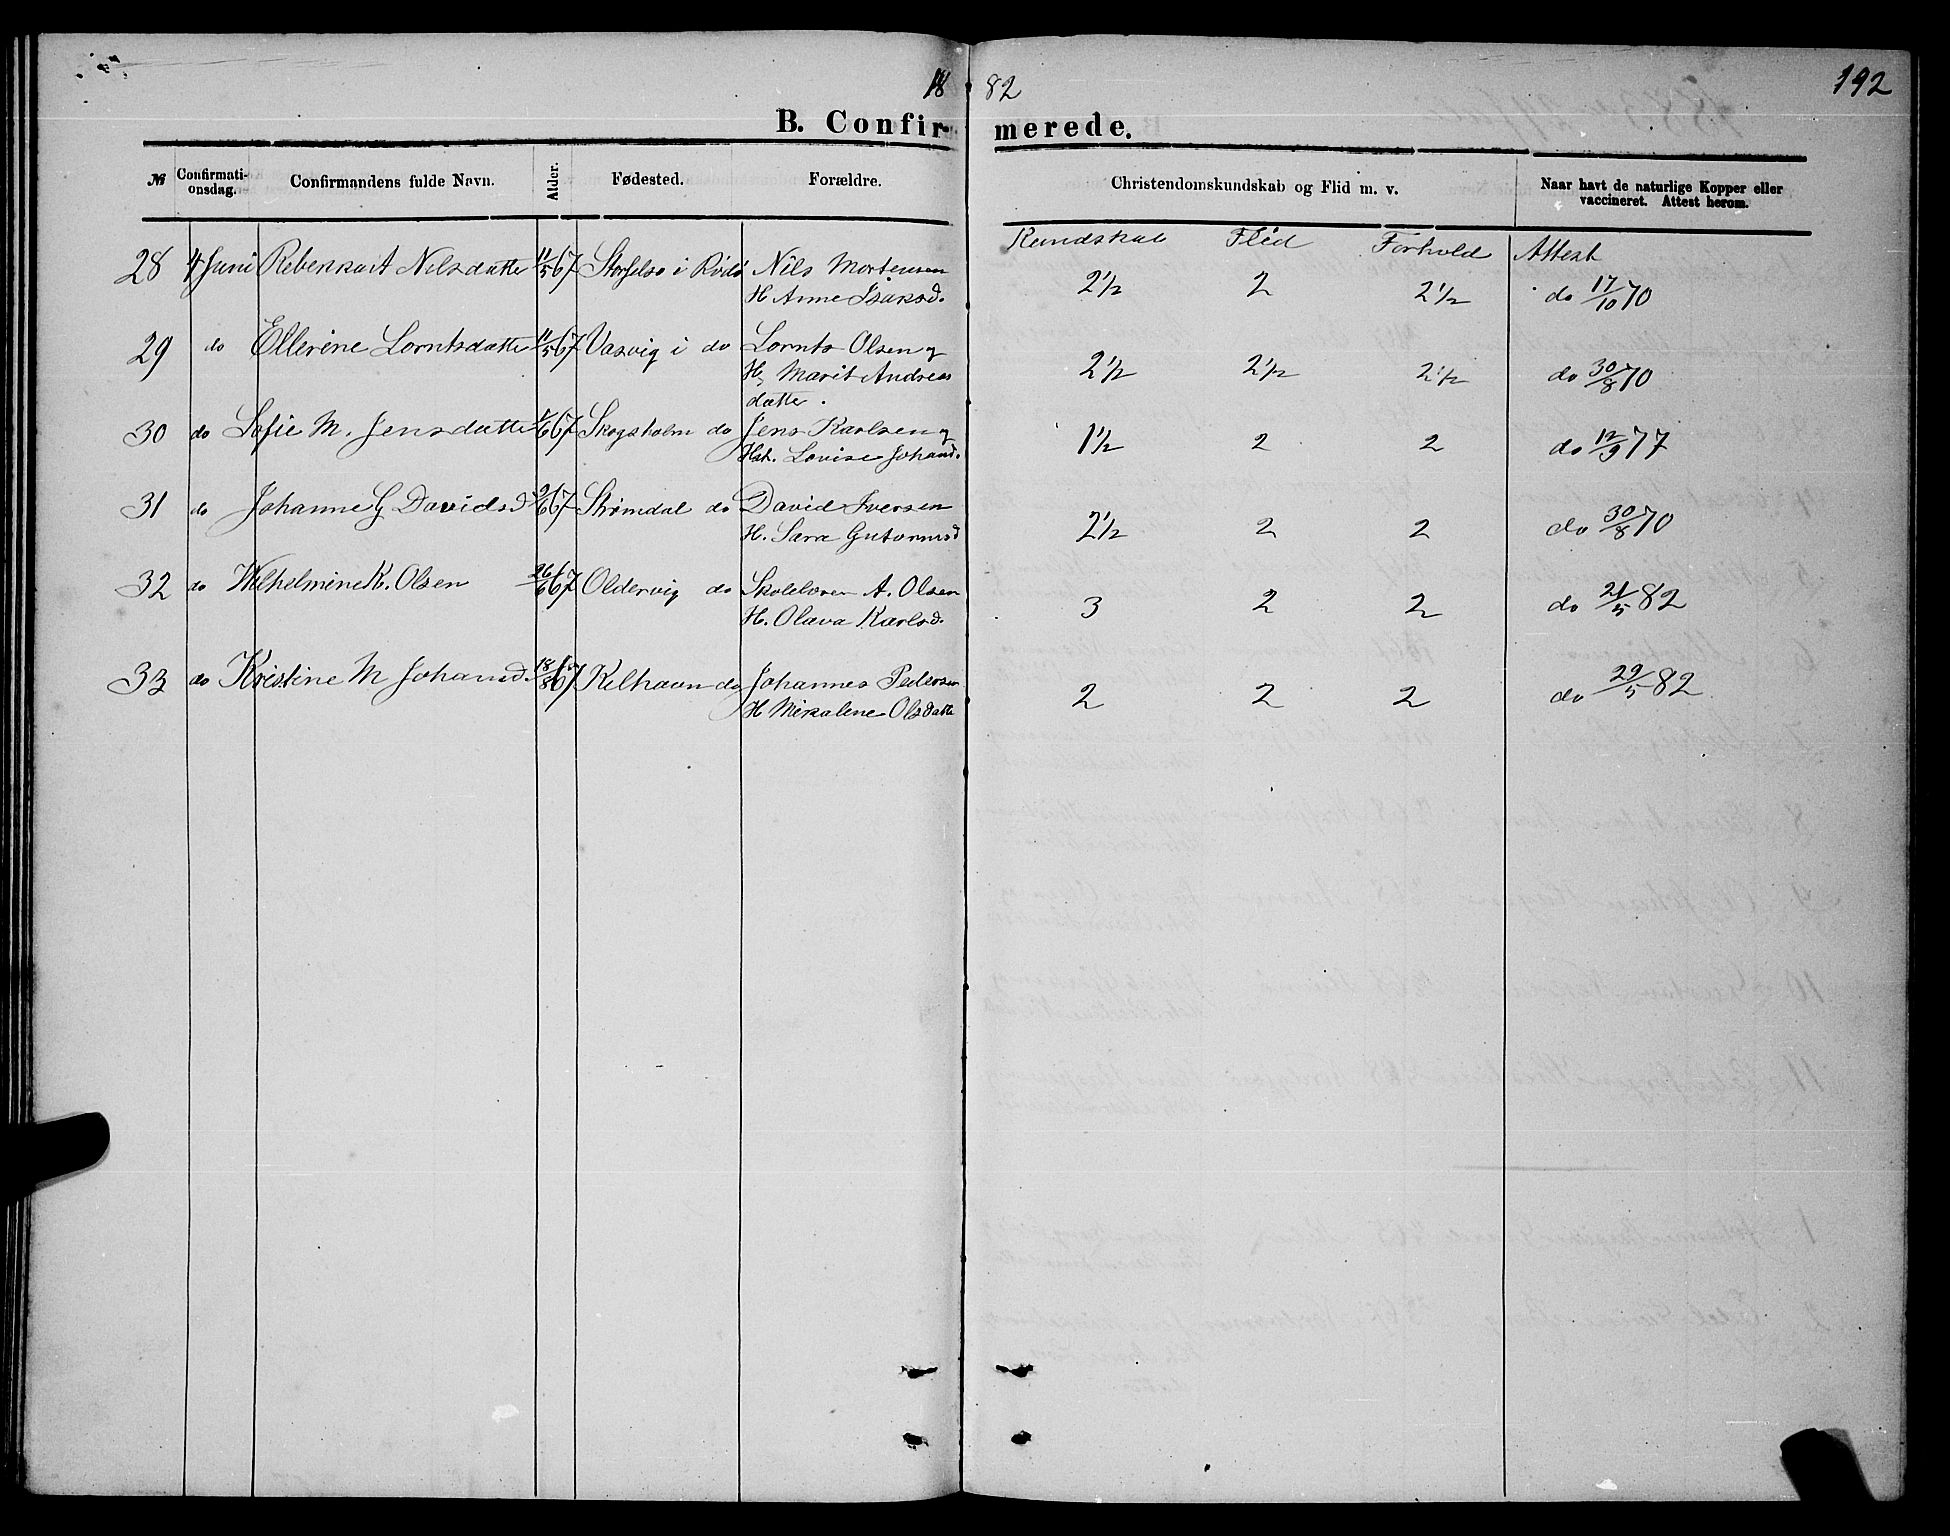 18 82
192
B. Confirmerede.
№ Confirmationsdag. Confirmandens fulde Navn. Alder. Fødested. Forældre. Christendomskundskab og Flid m. v. Naar havt de naturlige Kopper eller vaccineret. Attest herom.
Kundskab Flid Forhold Attest
28 4 Juni Rebekka A Nilsdatter 11/5 67 Storselsø i Rødø Nils Mortensen 2½ 2 2½ do 17/10 70
H Anne Isaksd.
29 do Ellerine Lorntsdatter 11/5 67 Vasvig i do Lornts Olsen og 2½ 2½ 2½ do 30/8 70
H. Marit Andreas
datter.
30 do Sofie M. Jensdatter 1/6 67 Skogsholm do Jens Karlsen og 1½ 2 2 do 12/9 77
Hst. Lovise Johand.
31 do Johanne G Davidsd 9/6 67 Strømdal do David Iversen 2½ 2 2 do 30/8 70
H. Sara Gutormsd
32 do Wilhelmine K. Olsen 26/6 67 Oldervig do Skolelærer A. Olsen 3 2 2 do 21/5 82
H. Olava Karlsd.
33 do Kristine M Johansd. 18/8 67 Kelhavn do Johannes Pedersen 2 2 2 do 29/5 82
H Mikaline Olsdatter